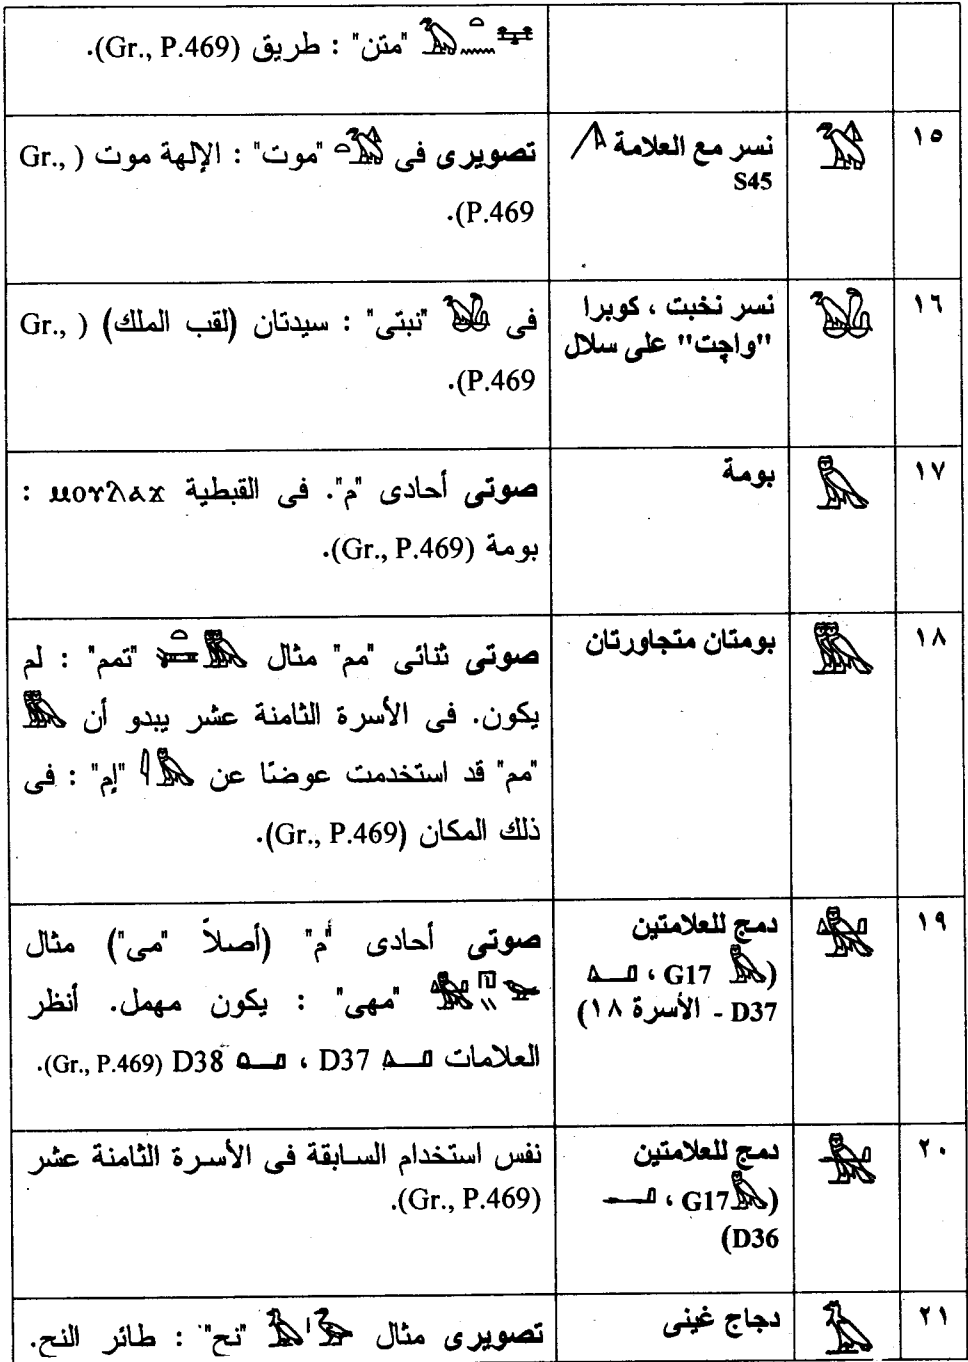 "متن" : طريق (Gr., P.469).
١٥
نسر مع العلامة
S45
تصويرى فى "موت" : الإلهة موت (Gr.,
P.469).
١٦
نسر نخبت ، كوبرا
"واچت" على سلال
فى "نبتى" : سيدتان (لقب الملك) (Gr.,
P.469).
١٧
بومة
صوتى أحادى "م". فى القبطية ⲙⲟⲩⲗⲁϫ :
بومة (Gr., P.469).
١٨
بومتان متجاورتان
صوتى ثنائى "مم" مثال "تمم" : لم
يكون. فى الأسرة الثامنة عشر يبدو أن
"مم" قد استخدمت عوضًا عن "إم" : فى
ذلك المكان (Gr., P.469).
١٩
دمج للعلامتين
( G17 ،
D37 - الأسرة ١٨)
صوتى أحادى "م" (أصلاً "مى") مثال
"مهى" : يكون مهمل. أنظر
العلامات D37 ، D38 (Gr., P.469).
٢٠
دمج للعلامتين
(G17 ،
D36)
نفس استخدام السابقة فى الأسرة الثامنة عشر
(Gr., P.469).
٢١
دجاج غينى
تصويرى مثال "نح" : طائر النح.